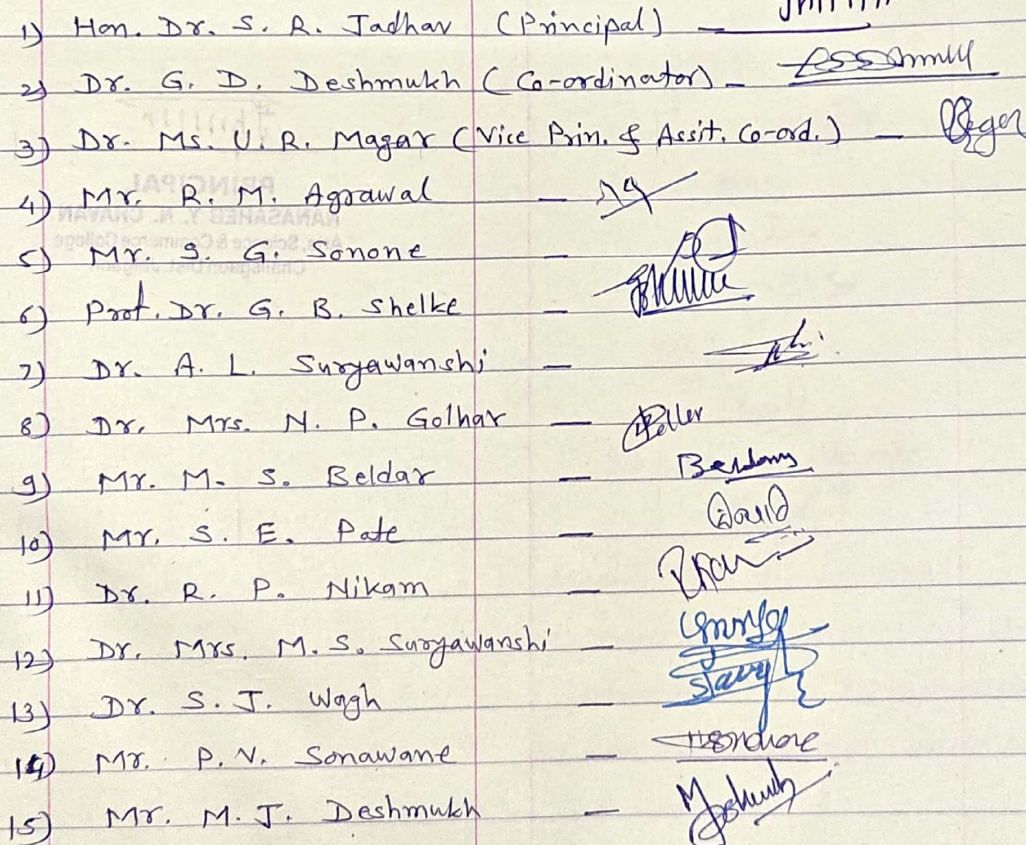 1) Hon. Dr. S. R. Jadhav (Principal) —
2) Dr. G. D. Deshmukh (Co-ordinator) –
3) Dr. Ms. U. R. Magar (Vice Prin. & Assit. Co-ord.) –
4) Mr. R. M. Agrawal –
5) Mr. S. G. Sonone –
6) Prof. Dr. G. B. Shelke –
7) Dr. A. L. Suryawanshi –
8) Dr. Mrs. N. P. Golhar –
9) Mr. M. S. Beldar –
10) Mr. S. E. Pate –
11) Dr. R. P. Nikam –
12) Dr. Mrs. M. S. Suryawanshi –
13) Dr. S. J. Wagh –
14) Mr. P. V. Sonawane –
15) Mr. M. J. Deshmukh –